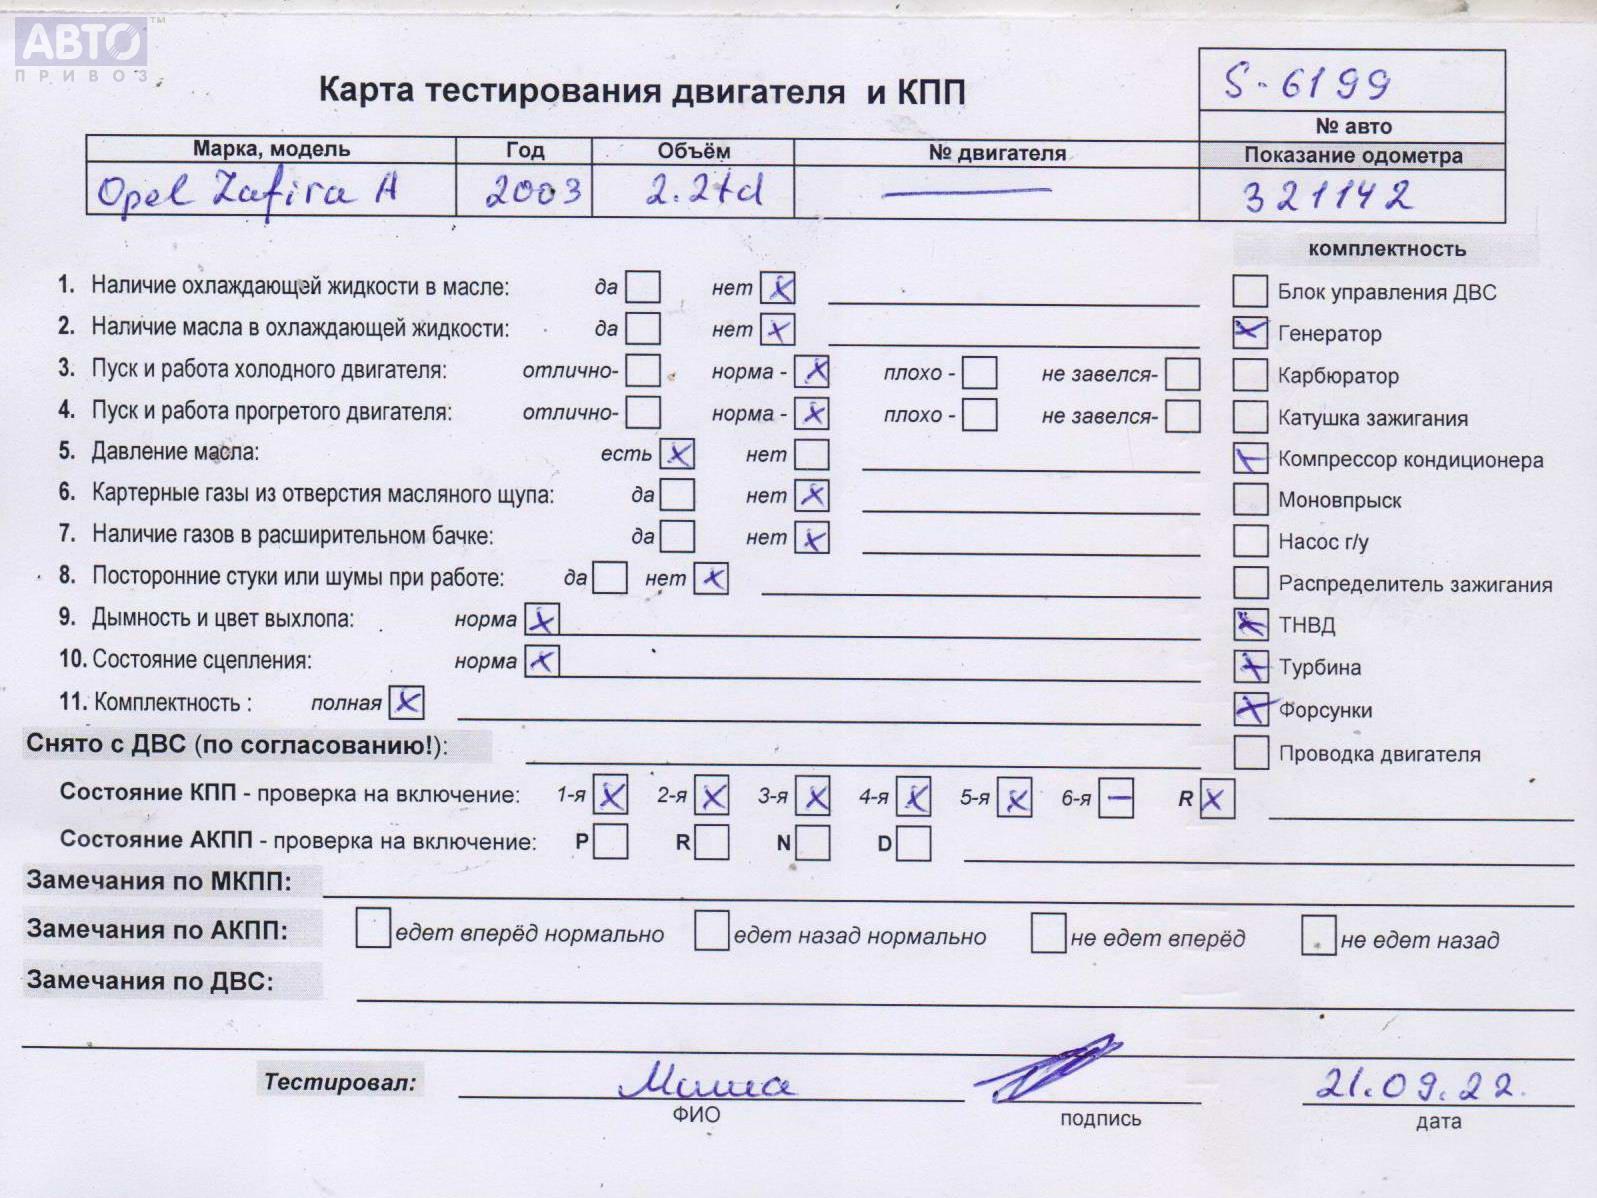 АВТО ™
ПРИВОЗ
Карта тестирования двигателя и КПП
S-6199
№ авто
Марка, модель Год Объём № двигателя Показание одометра
Opel Zafira A 2003 2.2td — 321142
комплектность
1. Наличие охлаждающей жидкости в масле: да нет X
Блок управления ДВС
2. Наличие масла в охлаждающей жидкости: да нет X
X Генератор
3. Пуск и работа холодного двигателя: отлично- норма - X плохо - не завелся-
Карбюратор
4. Пуск и работа прогретого двигателя: отлично- норма - X плохо - не завелся-
Катушка зажигания
5. Давление масла: есть X нет
X Компрессор кондиционера
6. Картерные газы из отверстия масляного щупа: да нет X
Моновпрыск
7. Наличие газов в расширительном бачке: да нет X
Насос г/у
8. Посторонние стуки или шумы при работе: да нет X
Распределитель зажигания
9. Дымность и цвет выхлопа: норма X
X ТНВД
10. Состояние сцепления: норма X
X Турбина
11. Комплектность : полная X
X Форсунки
Снято с ДВС (по согласованию!):
Проводка двигателя
Состояние КПП - проверка на включение: 1-я X 2-я X 3-я X 4-я X 5-я X 6-я — R X
Состояние АКПП - проверка на включение: P R N D
Замечания по МКПП:
Замечания по АКПП: едет вперёд нормально едет назад нормально не едет вперёд не едет назад
Замечания по ДВС:
Тестировал: Миша 21.09.22.
ФИО подпись дата